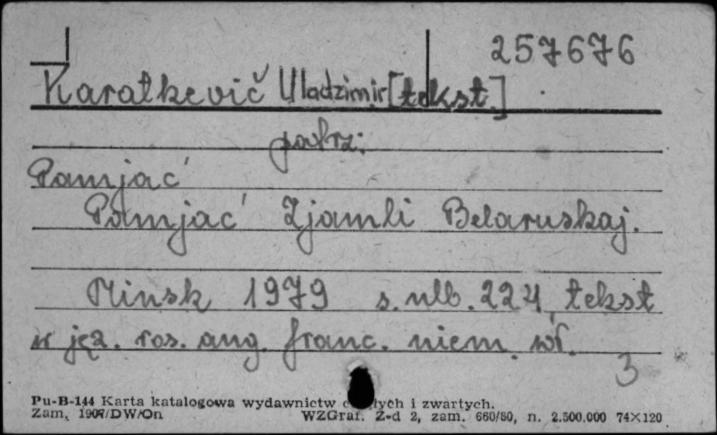 257676
Karatkevič Uladzimir [tekst.]
patrz:
Pamjać
Pamjać Zjamli Belaruskaj.
Minsk 1979 s. nlb. 224, tekst
w jęz. ros. ang. franc. niem. wł.
3
Pu-B-144 Karta katalogowa wydawnictw ciągłych i zwartych.
Zam. 1907/DW/On WZGraf. Z-d 2, zam. 660/80, n. 2.500.000 74×120